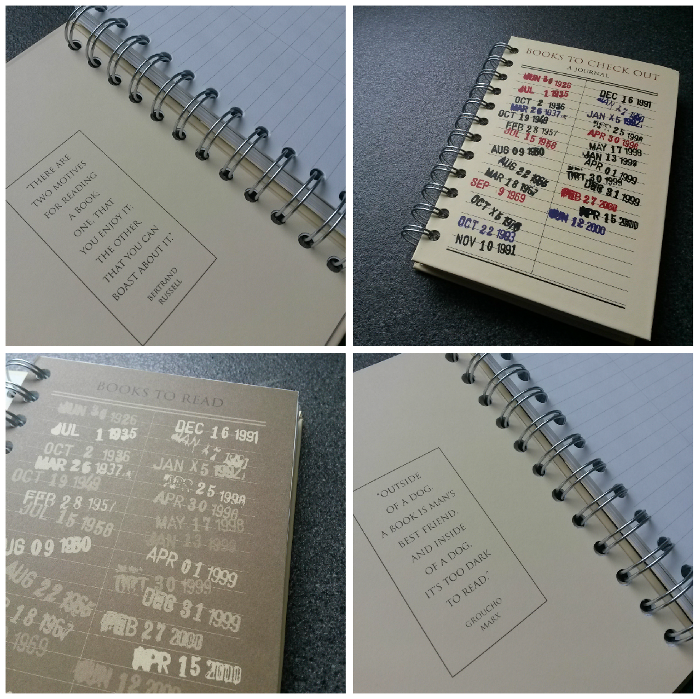 "THERE ARE
TWO MOTIVES
FOR READING
A BOOK:
ONE, THAT
YOU ENJOY IT;
THE OTHER
THAT YOU CAN
BOAST ABOUT IT."
BERTRAND
RUSSELL
BOOKS TO CHECK OUT
A JOURNAL
JUN 1926
JUL 1 1935
OCT 2 1936
MAR 26 1937
OCT 19 1949
FEB 28 1957
JUL 15 1958
AUG 09 1960
AUG 22
MAR 18 1967
SEP 9 1969
OCT
OCT 22 1983
NOV 10 1991
DEC 16 1991
JAN
JAN
25 1998
APR 30
MAY 17 1998
JAN 13 1999
APR 1999
OCT 30 1999
DEC 31 1999
FEB 27 2000
APR 15 2000
JUN 12 2000
BOOKS TO READ
JUN 1926
JUL 1 1935
OCT 2 1936
MAR 26 1937
OCT 19 1949
FEB 28 1957
JUL 15 1958
AUG 09 1960
AUG 22
18 1967
1969
DEC 16 1991
JAN
JAN
25 1998
APR 30
MAY 17 1998
JAN 13 1999
APR 01 1999
OCT 30 1999
DEC 31 1999
FEB 27 2000
APR 15 2000
JUN 12 2000
"OUTSIDE
OF A DOG,
A BOOK IS MAN'S
BEST FRIEND.
AND INSIDE
OF A DOG,
IT'S TOO DARK
TO READ."
GROUCHO
MARX